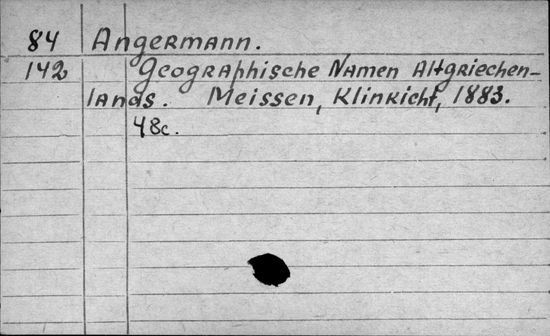 84 Angermann.
142 Geographische Namen Altgriechen-
lands. Meissen, Klinkicht, 1883.
48c.